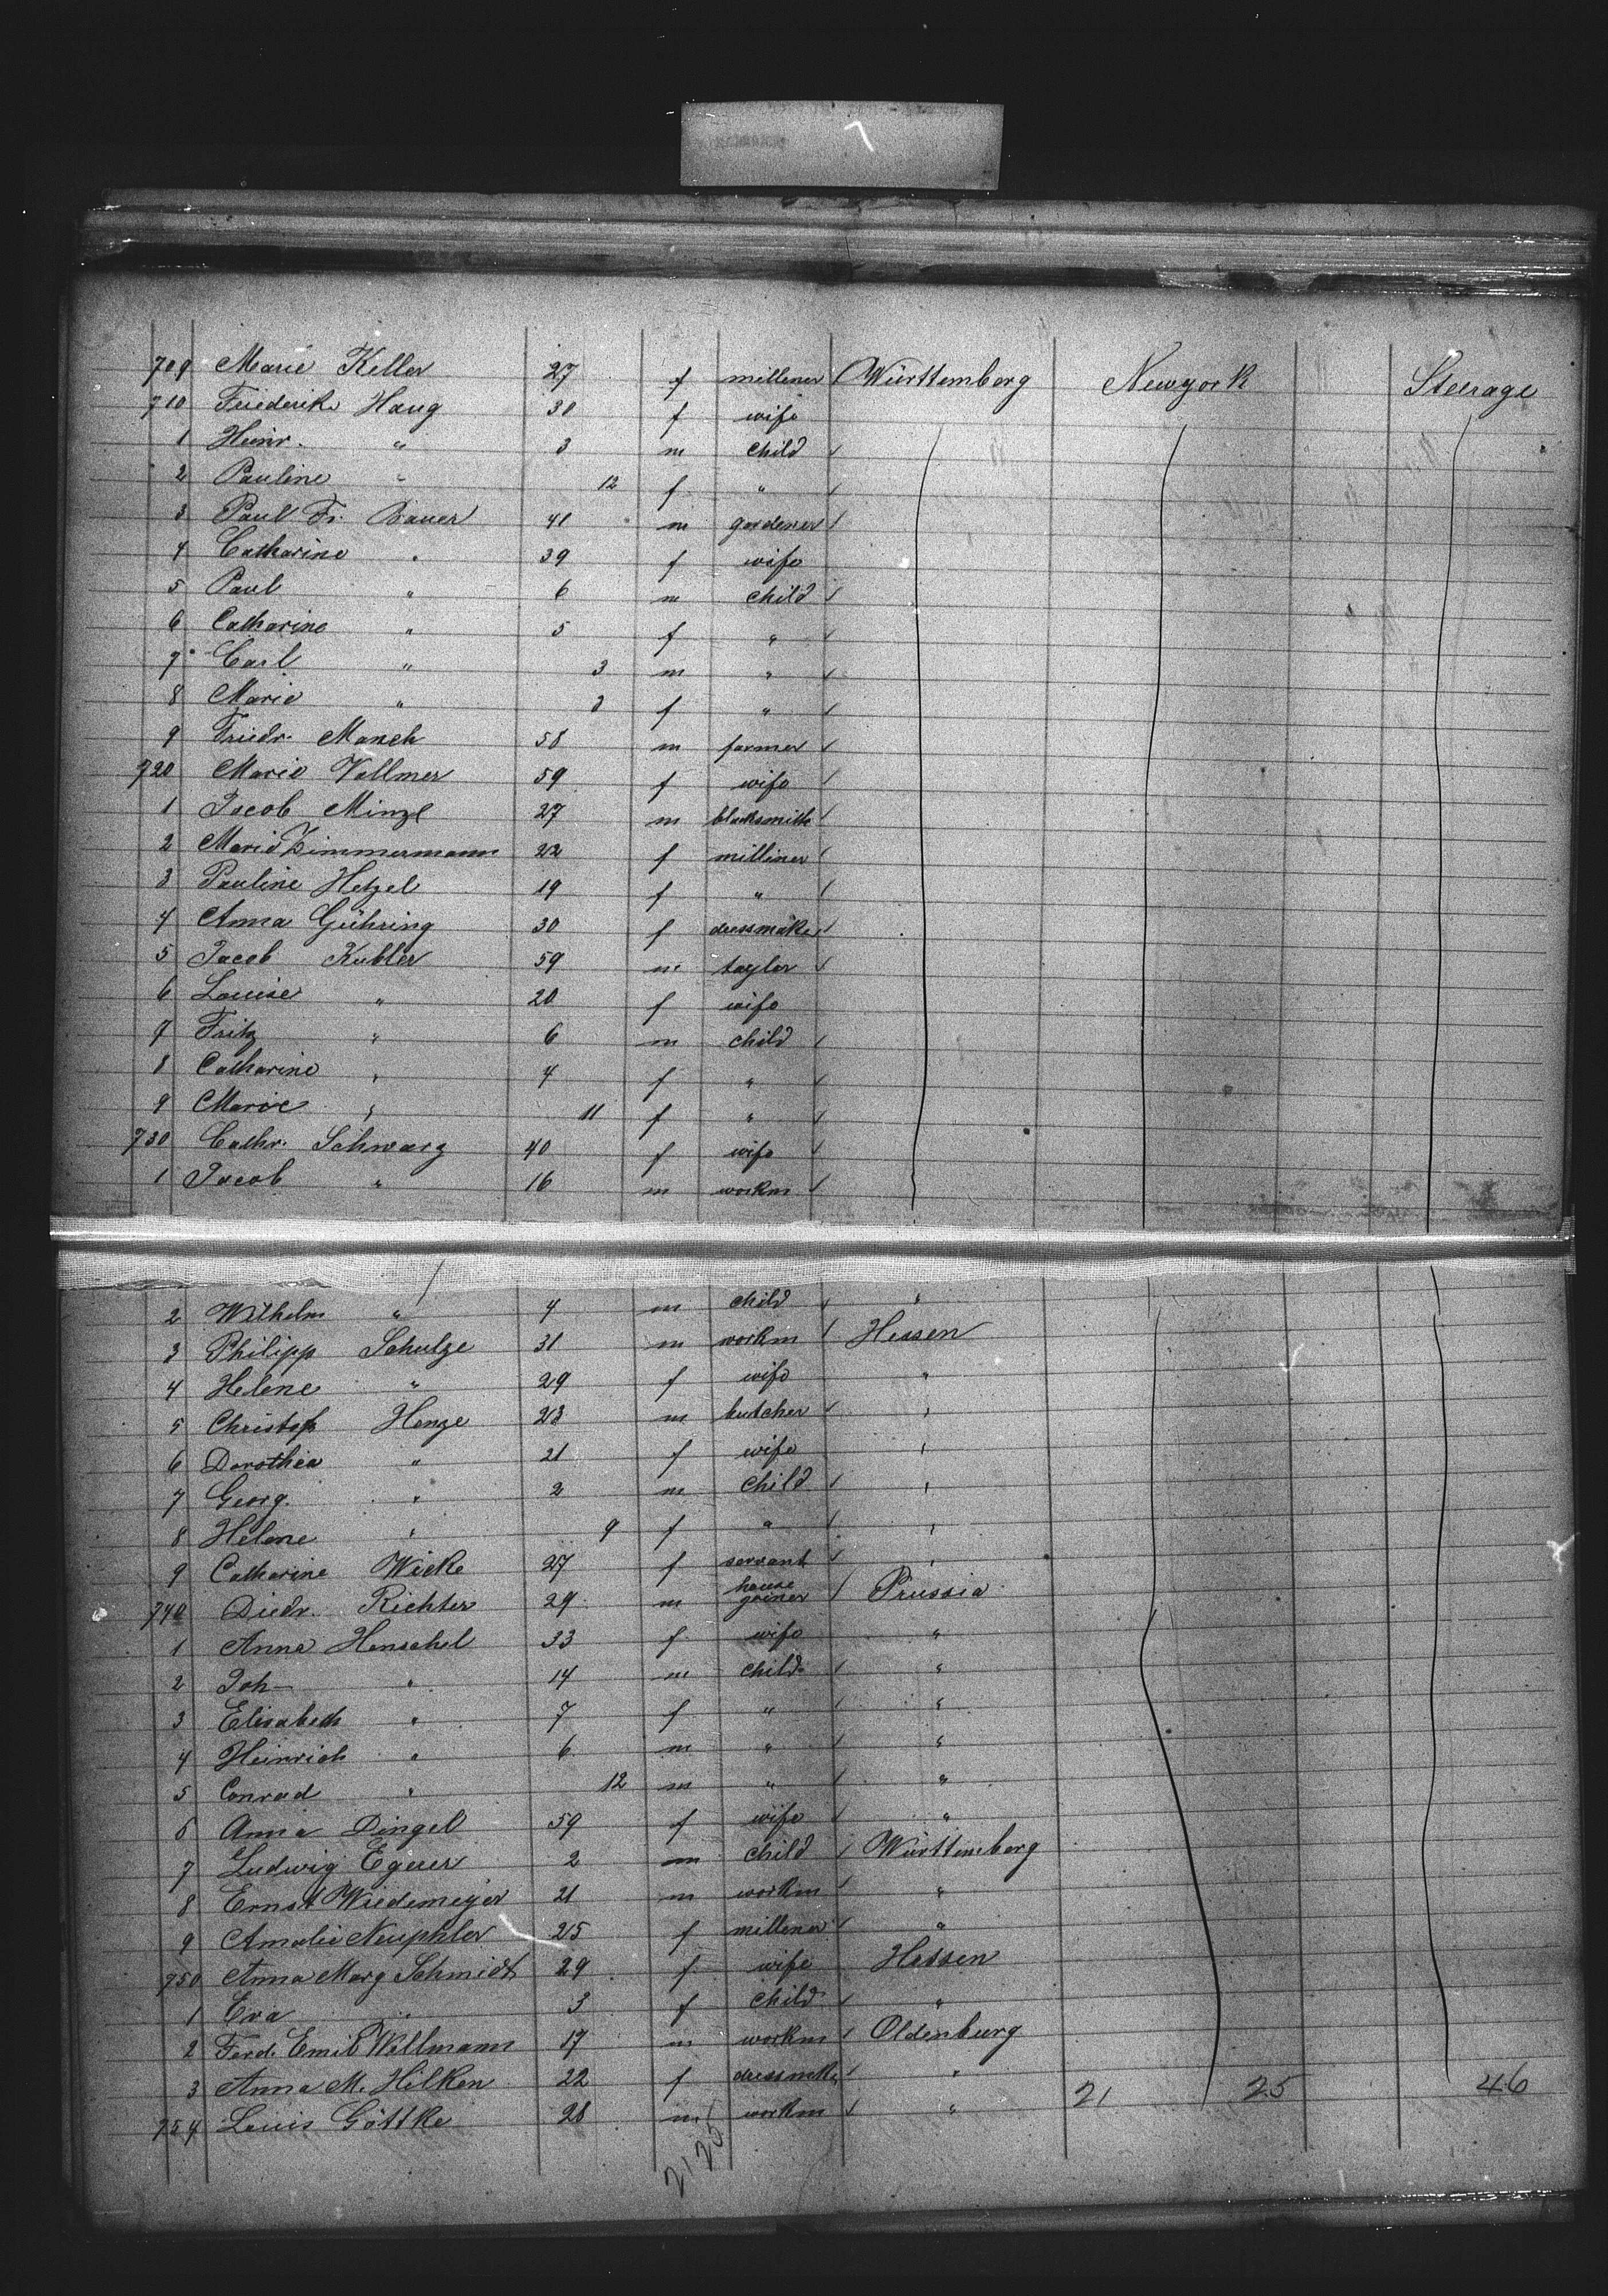 709 Marie Keller 27 f millener / Württemberg Newyork Steerage
710 Friederike Haug 30 f wife
1 Heinr. " 3 m child /
2 Pauline " 12 f " /
3 Paul Fr. Bauer 41 m gardener /
4 Catharine " 39 f wife
5 Paul " 6 m child /
6 Catharine " 5 f " /
7 Carl " 3 m " /
8 Marie " 3 f " /
9 Friedr. Manch 58 m farmer /
720 Marie Vollmer 59 f wife /
1 Jacob Minzl 27 m blacksmith /
2 Marie Zimmermann 22 f milliner /
3 Pauline Hetzel 19 f " /
4 Anna Gühring 30 f dressmaker /
5 Jacob Kubler 59 m taylor /
6 Louise " 20 f wife
7 Fritz " 6 m child /
8 Catharine " 4 f " /
9 Marie " 11 f " /
730 Cathr. Schwarz 40 f wife /
1 Jacob " 16 m workm /
2 Wilhelm " 4 m child / "
3 Philipp Schulze 31 m workm / Hessen
4 Helene " 29 f wife "
5 Christoph Henze 23 m butcher / "
6 Dorothea " 21 f wife "
7 Georg. " 2 m child / "
8 Helene " 9 f " / "
9 Catharine Wicke 27 f servant / "
740 Diedr. Richter 29 m house joiner / Prussia
1 Anna Henschel 33 f wife "
2 Joh " 14 m child / "
3 Elisabeth " 7 f " / "
4 Heinrich " 6 m " / "
5 Conrad " 12 m " / "
6 Anna Dingel 59 f wife / "
7 Ludwig Egeler 2 m child / Württemberg
8 Ernst Wiedemeyer 21 m workm / "
9 Amalie Neuphler 25 f millener / "
750 Anna Marg Schmidt 29 f wife Hessen
1 Eva " 3 f child / "
2 Ferd. Emil Wellmann 17 m workm / Oldenburg
3 Anna M. Hilken 22 f dressmkr / "
754 Louis Göttke 28 m workm / " 21 25 46
21 25